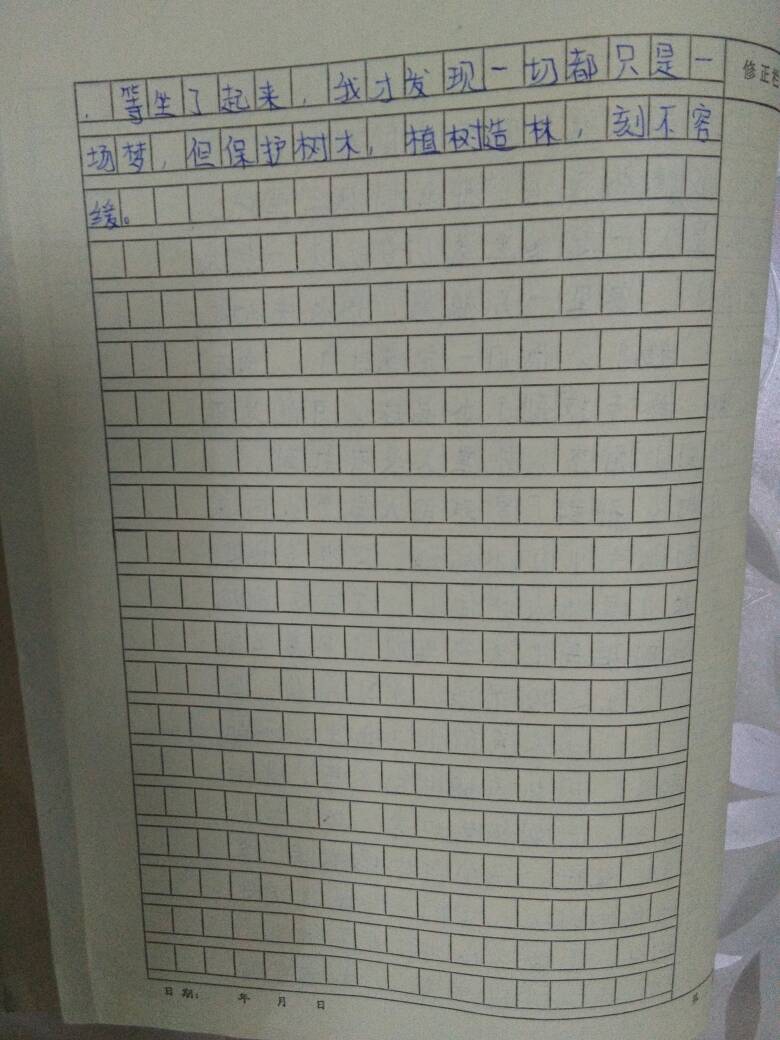 ，等坐了起来，我才发现一切都只是一
场梦，但保护树木，植树造林，刻不容
缓。
修正栏
日期： 年 月 日